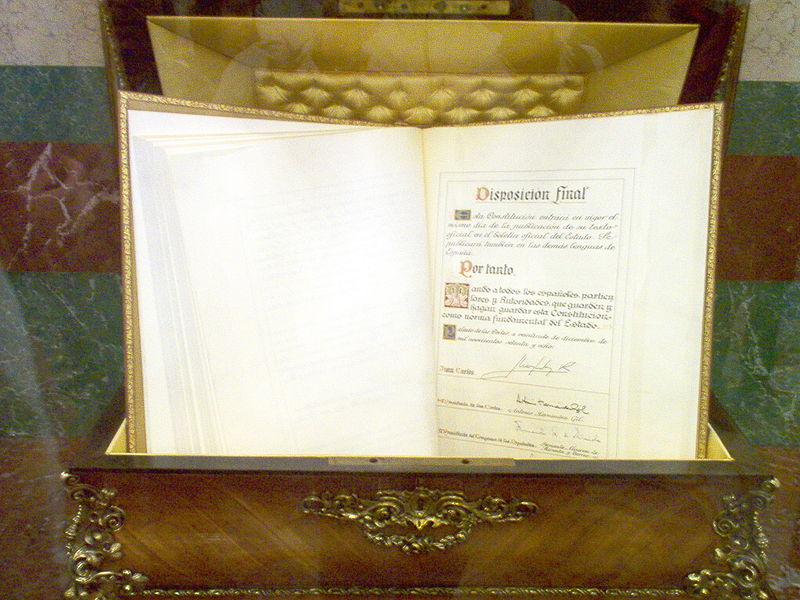 Disposicion final
Esta Constitución entrará en vigor el
mismo día de la publicación de su texto
oficial en el boletín oficial del Estado. Se
publicará también en las demás lenguas de
España.
Por tanto,
Mando a todos los españoles, particu
lares y Autoridades, que guarden y
hagan guardar esta Constitucion,
como norma fundamental del Estado.
Palacio de las Cortes, a veintisiete de diciembre de
mil novecientos setenta y ocho.
Juan Carlos.
El Presidente de las Cortes.
Antonio Hernández Gil.
El Presidente del Congreso de los Diputados.
Fernando Álvarez de
Miranda y Torres